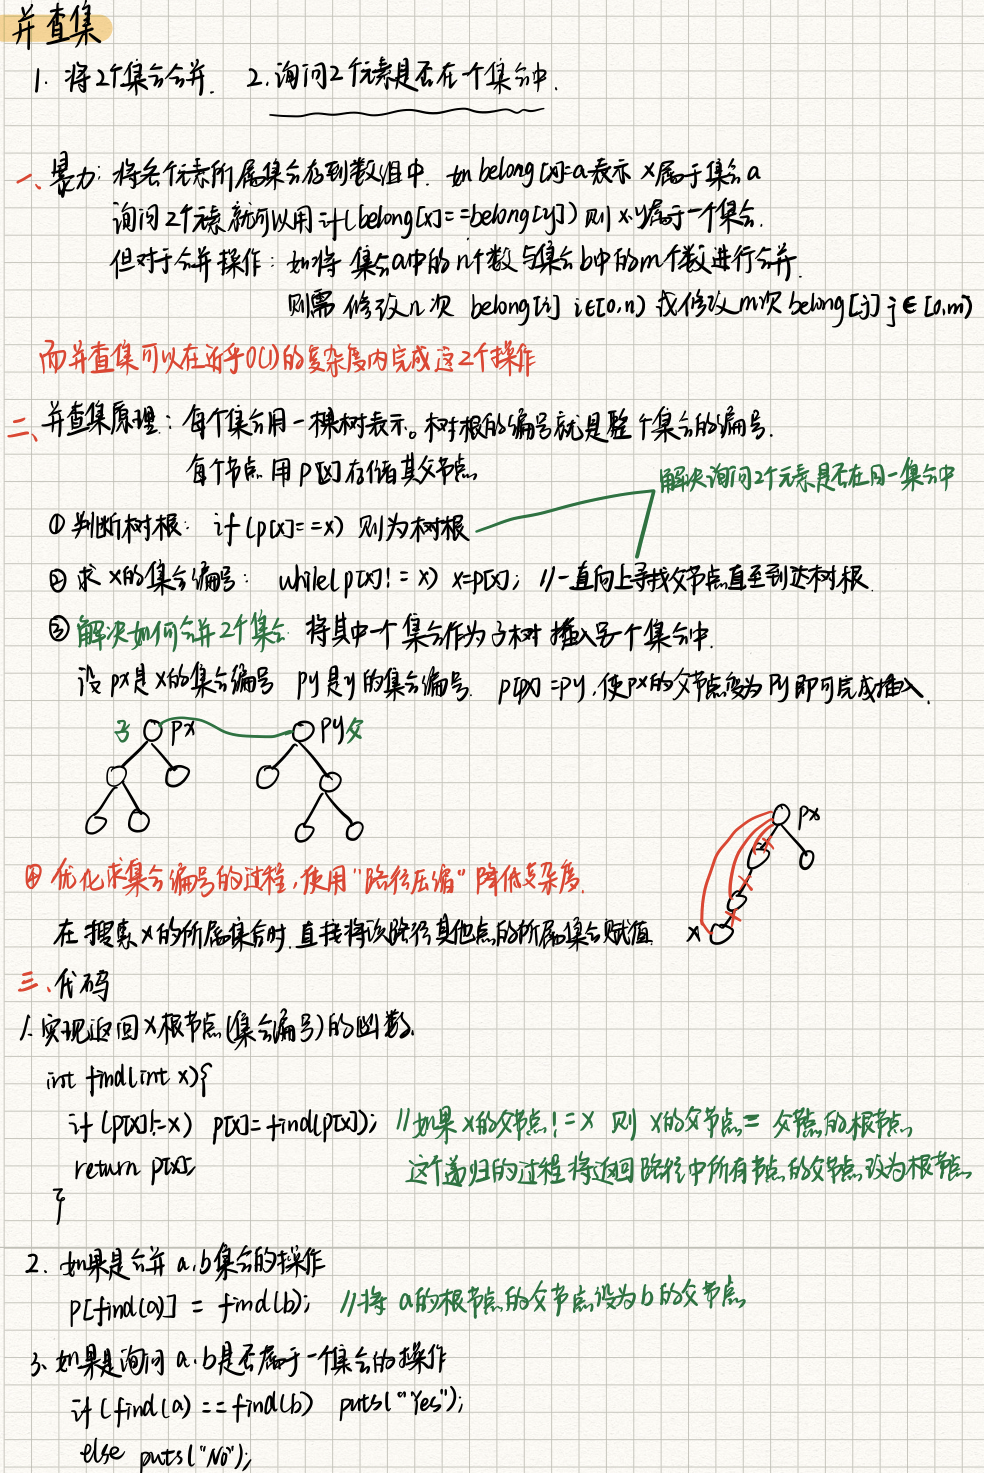 并查集
1. 将2个集合合并. 2. 询问2个元素是否在一个集合中.
一、暴力: 将各个元素所属集合存到数组中. 如belong[x]=a表示 x属于集合a
询问2个元素就可以用if(belong[x]==belong[y])则x.y属于一个集合.
但对于合并操作: 如将 集合a中的n个数与集合b中的m个数进行合并.
则需 修改n次 belong[i] i∈[0,n) 或修改m次belong[j] j∈[0,m)
而并查集可以在近乎O(1)的复杂度内完成这2个操作
二、并查集原理: 每个集合用一棵树表示。树根的编号就是整个集合的编号.
每个节点 用p[x]存储其父节点
解决询问2个元素是否在同一集合中
① 判断树根: if(p[x]==x) 则为树根
② 求 x的集合编号: while(p[x]!=x) x=p[x]; //一直向上寻找父节点直至到达树根
③ 解决如何合并2个集合 将其中一个集合作为子树 插入另一个集合中.
设px是x的集合编号 py是y的集合编号. p[px]=py,使px的父节点变为py即可完成插入.
子 px py 父
px
④ 优化求集合编号的过程,使用"路径压缩"降低复杂度.
在搜索x的所属集合时.直接将该路径其他点的所属集合赋值 x
三、代码
1. 实现返回x根节点(集合编号)的函数.
int find(int x){
if(p[x]!=x) p[x]=find(p[x]); //如果x的父节点!=x 则 x的父节点= 父节点的根节点
return p[x]; 这个递归的过程将返回路径中所有节点的父节点改为根节点
}
2. 如果是合并a.b集合的操作
p[find(a)] = find(b); //将 a的根节点的父节点设为b的父节点
3. 如果是询问a.b是否属于一个集合的操作
if(find(a)==find(b) puts("Yes");
else puts("No");